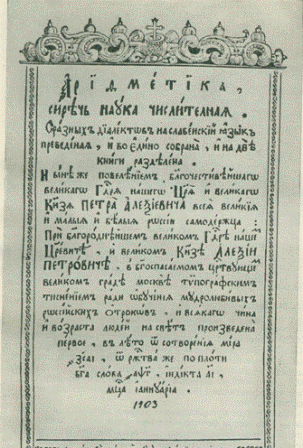 Арїѳме́тїка,
сирѣчь наука числителная.
Сразныхъ дїалектѡвъ на славенскїй ꙗзыкъ
преведеная, и во едино собрана, и на двѣ
книги раздѣлена.
Н҃нѣ же повелѣнїемъ, бл҃гочестивѣйшагѡ
великагѡ Гд҃ря нашегѡ Цр҃я и великагѡ
Кн҃зя ПЕТРА АЛЕѮїевича всея великїя
и малыя и бѣлыя рѡссїи самодержца:
При бл҃городнѣйшемъ великомъ Гд҃рѣ нашемъ
Цр҃евичѣ, и великомъ Кн҃зѣ АЛЕѮїи
ПЕТРОвичѣ, въ б҃госпасаемомъ цр҃твующемъ
великомъ градѣ москвѣ тѷпографскимъ
тисненїемъ ради ѡбученїя мудролюбивыхъ
рѡссїйскихъ ѻтрокѡвъ, и всякагѡ чина
и возраста людей на свѣтъ произведена
первое, въ лѣто ѿ сотворенїя мїра
҂зсаі, ѿ рж҃тва же по плоти
бг҃а слова ҂аѱг, індїкта аі,
мц҃а іаннуарїа.
1703